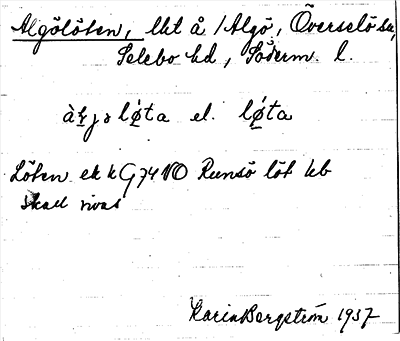 Algölöten, lht å /Algö, Överselö sn,
Selebo hd, Söderm. l.
àḷjo lø̀ta el. lø̀ta
Löten ek k G74 NO Runsö löt hb
skall rivas
Karin Bergström 1937